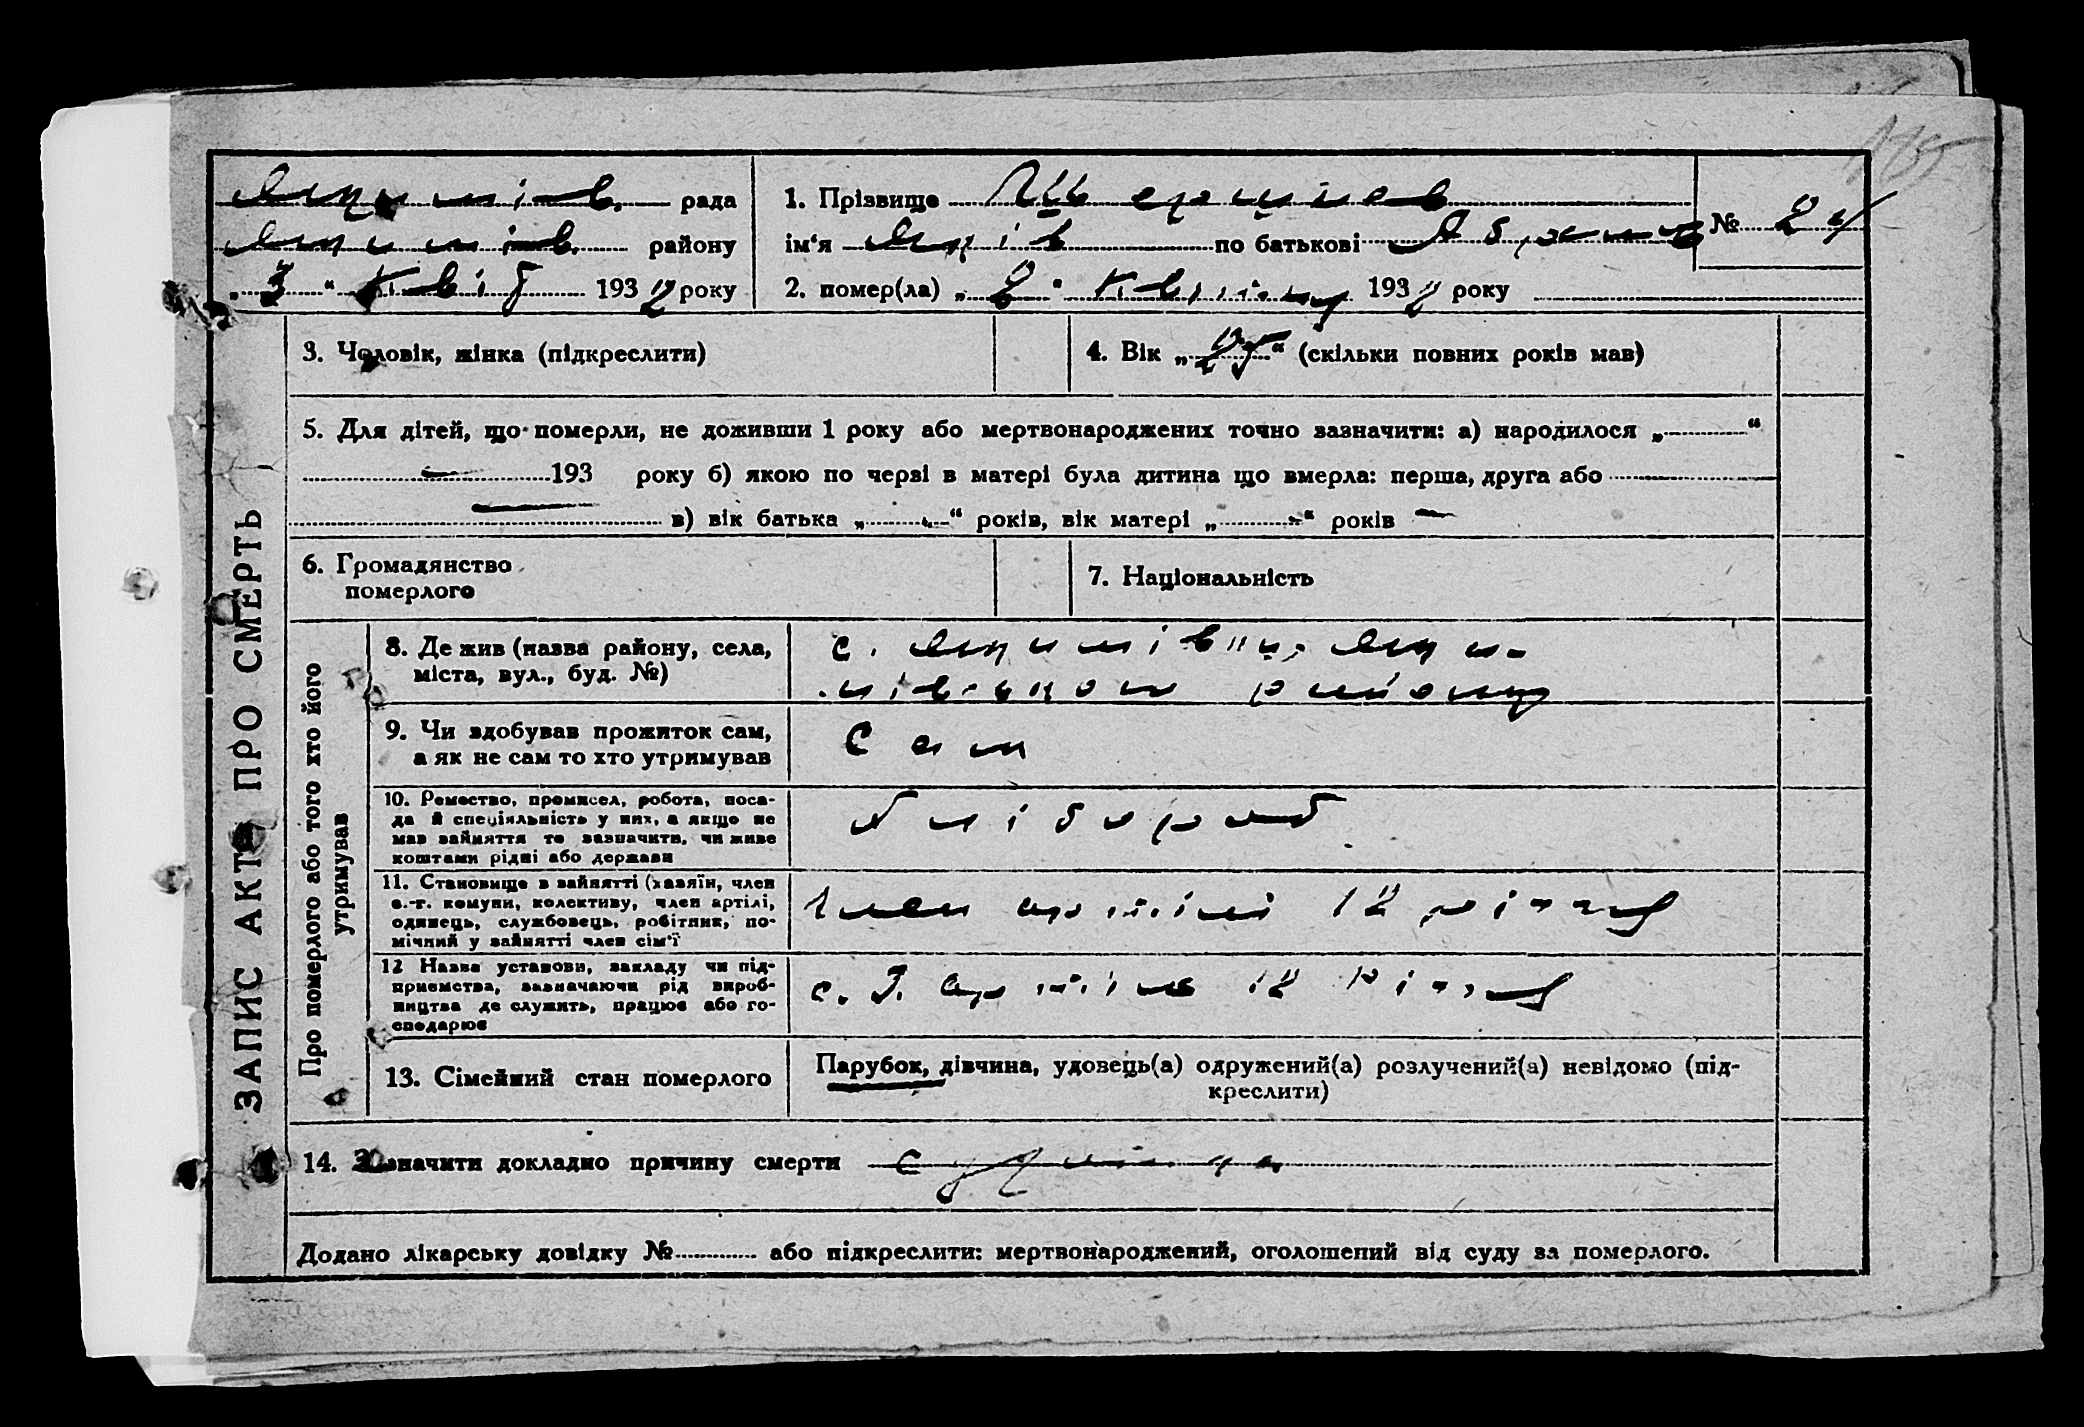 рада
району
„ 3 “ Квіт 1932 року
1. Прізвище
ім‘я Яків по батькові
2. помер(ла) „ 2 “ Квітня 1932 року
№ 24
3. Чоловік, жінка (підкреслити)
4. Вік „ “ (скільки повних років мав)
5. Для дітей, що померли, не доживши 1 року або мертвонароджених точно зазначити: а) народилося „ “
193 року б) якою по черві в матері була дитина що вмерла: перша, друга або
в) вік батька „ “ років, вік матері „ “ років
6. Громадянство
померлого
7. Національність
ЗАПИС АКТ ПРО СМЕРТЬ
Про померлого або того хто його
утримував
8. Де жив (назва району, села,
міста, вул., буд. №)
с.
району
9. Чи вдобував прожиток сам,
а як не сам то хто утримував
Сам
10. Ремество, промисел, робота, поса-
да й спеціяльність у них, а якщо не
мав вайняття то вазначити, чи живе
коштами рідні або держави
Хлібороб
11. Становище в вайнятті (хавяїн, член
с.-г. комуни, колективу, член артілі,
одинець, службовець, робітник, по-
мічний у вайнятті член сім‘ї
Член артілі 12 річчя
12 Назва установи, вакладу чи під-
приємства, вазначаючи рід вироб-
ництва де служить, працює або го-
сподарює
с. г. артіль 12 річчя
13. Сімейний стан померлого
Парубок, дівчина, удовець(а) одружений(а) розлучений(а) невідомо (під-
креслити)
14. Зазначити докладно причину смерти
Додано лікарську довідку № або підкреслити: мертвонароджений, оголошений від суду за померлого.